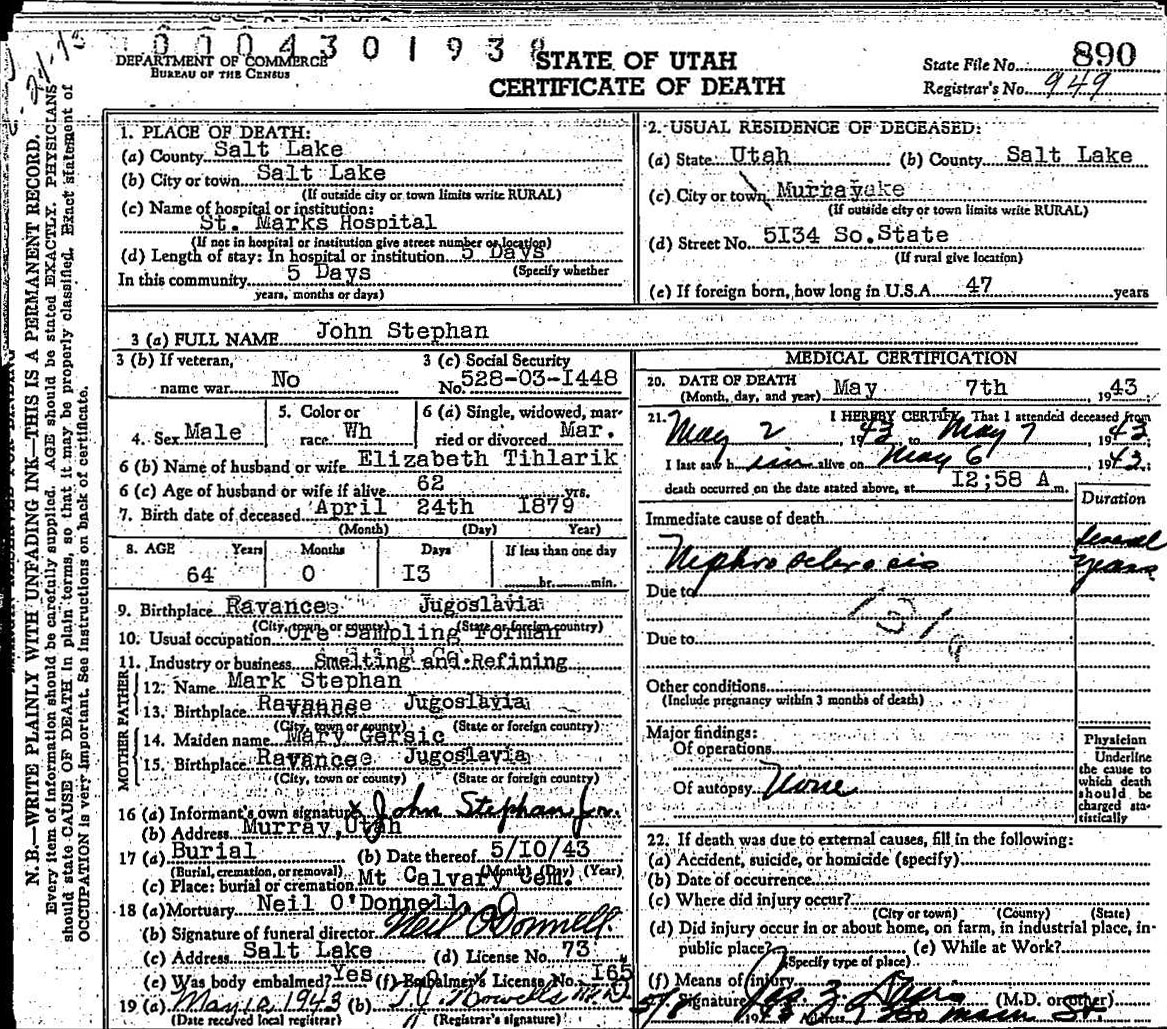 0004301938
DEPARTMENT OF COMMERCE
BUREAU OF THE CENSUS
STATE OF UTAH
CERTIFICATE OF DEATH
State File No. 890
Registrar's No. 949
N.B.—WRITE PLAINLY WITH UNFADING INK—THIS IS A PERMANENT RECORD.
Every item of information should be carefully supplied. AGE should be stated EXACTLY. PHYSICIANS
should state CAUSE OF DEATH in plain terms, so that it may be properly classified. Exact statement of
OCCUPATION is very important. See instructions on back of certificate.
1. PLACE OF DEATH:
(a) County Salt Lake
(b) City or town Salt Lake
(If outside city or town limits write RURAL)
(c) Name of hospital or institution:
St. Marks Hospital
(If not in hospital or institution give street number or location)
(d) Length of stay: In hospital or institution 5 Days
(Specify whether
In this community 5 Days
years, months or days)
2. USUAL RESIDENCE OF DECEASED:
(a) State Utah (b) County Salt Lake
(c) City or town Murray
(If outside city or town limits write RURAL)
(d) Street No. 5I34 So.State
(If rural give location)
(e) If foreign born, how long in U.S.A. 47 years
3 (a) FULL NAME John Stephan
3 (b) If veteran, name war No
3 (c) Social Security No. 528-03-I448
4. Sex Male
5. Color or race Wh
6 (a) Single, widowed, married or divorced Mar.
6 (b) Name of husband or wife Elizabeth Tihlarik
6 (c) Age of husband or wife if alive 62 yrs.
7. Birth date of deceased April 24th I879
(Month) (Day) Year)
8. AGE Years Months Days If less than one day
64 0 I3 hr. min.
9. Birthplace Ravance Jugoslavia
(City, town, or county) (State or foreign country)
10. Usual occupation Ore Sampling Forman
11. Industry or business Smelting and Refining
FATHER
12. Name Mark Stephan
13. Birthplace Ravance Jugoslavia
(City, town or county) (State or foreign country)
MOTHER
14. Maiden name Mary Gersic
15. Birthplace Ravance Jugoslavia
(City, town or county) (State or foreign country)
16 (a) Informant's own signature x John Stephan Jr.
(b) Address Murray, Utah
17 (a) Burial (b) Date thereof 5/I0/43
(Burial, cremation, or removal) (Month) (Day) (Year)
(c) Place: burial or cremation Mt Calvary Cem.
18 (a) Mortuary Neil O'Donnell
(b) Signature of funeral director Neil O'Donnell
(c) Address Salt Lake (d) License No. 73
(e) Was body embalmed? Yes (f) Embalmer's License No. I65
19 (a) May 10 1943 (b)
(Date received local registrar) (Registrar's signature)
MEDICAL CERTIFICATION
20. DATE OF DEATH May 7th, 1943
(Month, day, and year)
21. I HEREBY CERTIFY, That I attended deceased from
May 2 1943 to May 7, 1943
I last saw him alive on May 6, 1943;
death occurred on the date stated above, at I2;58 A m.
Duration
Immediate cause of death
Nephrosclerosis several years
Due to
131a
Due to
Other conditions
(Include pregnancy within 3 months of death)
Major findings:
Of operations
Of autopsy None
Physician
Underline
the cause to
which death
should be
charged sta-
tistically
22. If death was due to external causes, fill in the following:
(a) Accident, suicide, or homicide (specify)
(b) Date of occurrence
(c) Where did injury occur?
(City or town) (County) (State)
(d) Did injury occur in or about home, on farm, in industrial place, in-
public place? (e) While at Work?
(Specify type of place)
(f) Means of injury
Signature (M.D. or other)
Address Main St.